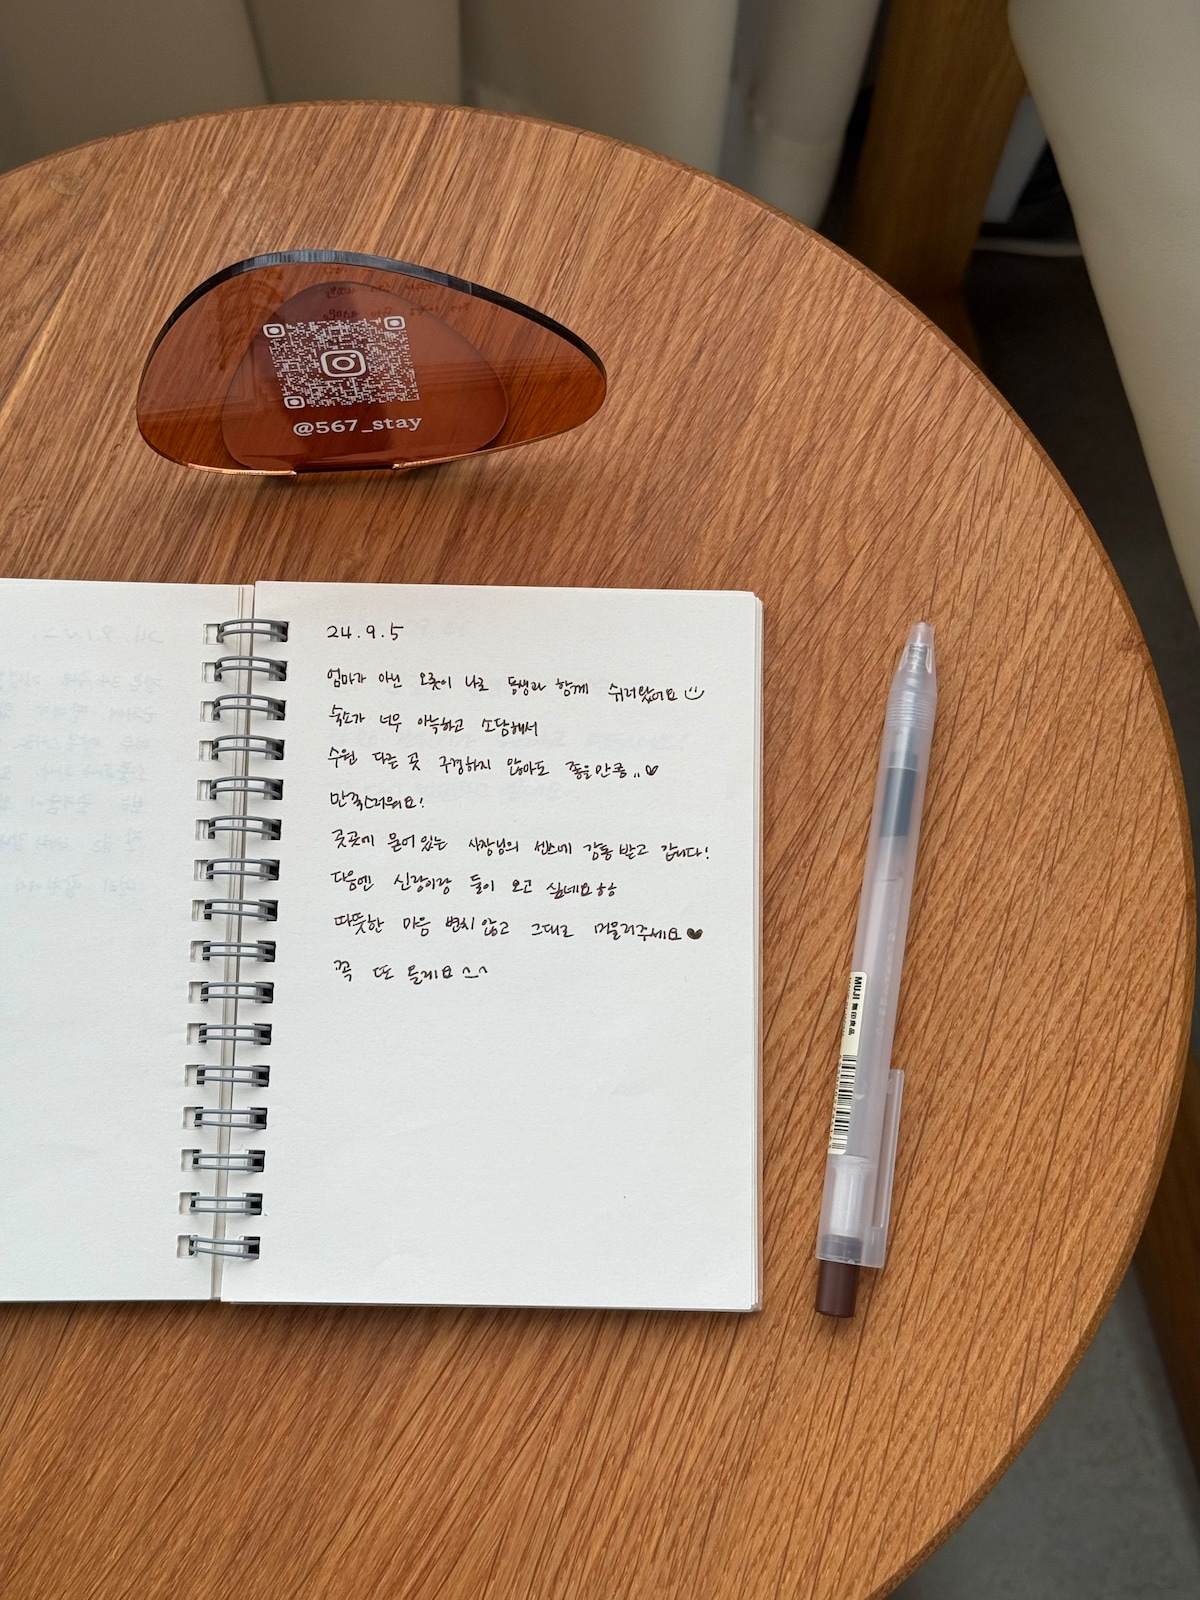 @567_stay
24.9.5
엄마가 아닌 오롯이 나로 동생과 함께 쉬러왔어요
숙소가 너무 아늑하고 소담해서
수원 다른 곳 구경하지 않아도 좋을만큼..♡
만족스러워요!
곳곳에 묻어있는 사장님의 센스에 감동받고 갑니다!
다음엔 신랑이랑 둘이 오고 싶네요ㅎㅎ
따뜻한 마음 변치않고 그대로 머물러주세요♥
꼭 또 올게요^^
MUJI 無印良品